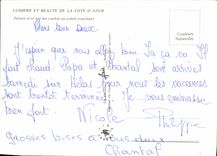 LUMIERE ET BEAUTE DE LA COTE D'AZUR
Palmiers et les yachts au soleil couchant
Couleurs
Naturelles
Chers tous deux
J'espère que vous allez bien Ici ça va Il
fait chaud. Papa et Chantal sont arrivés
samedi soir. Hélas pour nous les vacances
sont bientôt terminées. Je vous embrasse
bien fort.
Nicole
Philippe
grosses bises à vous deux
Chantal